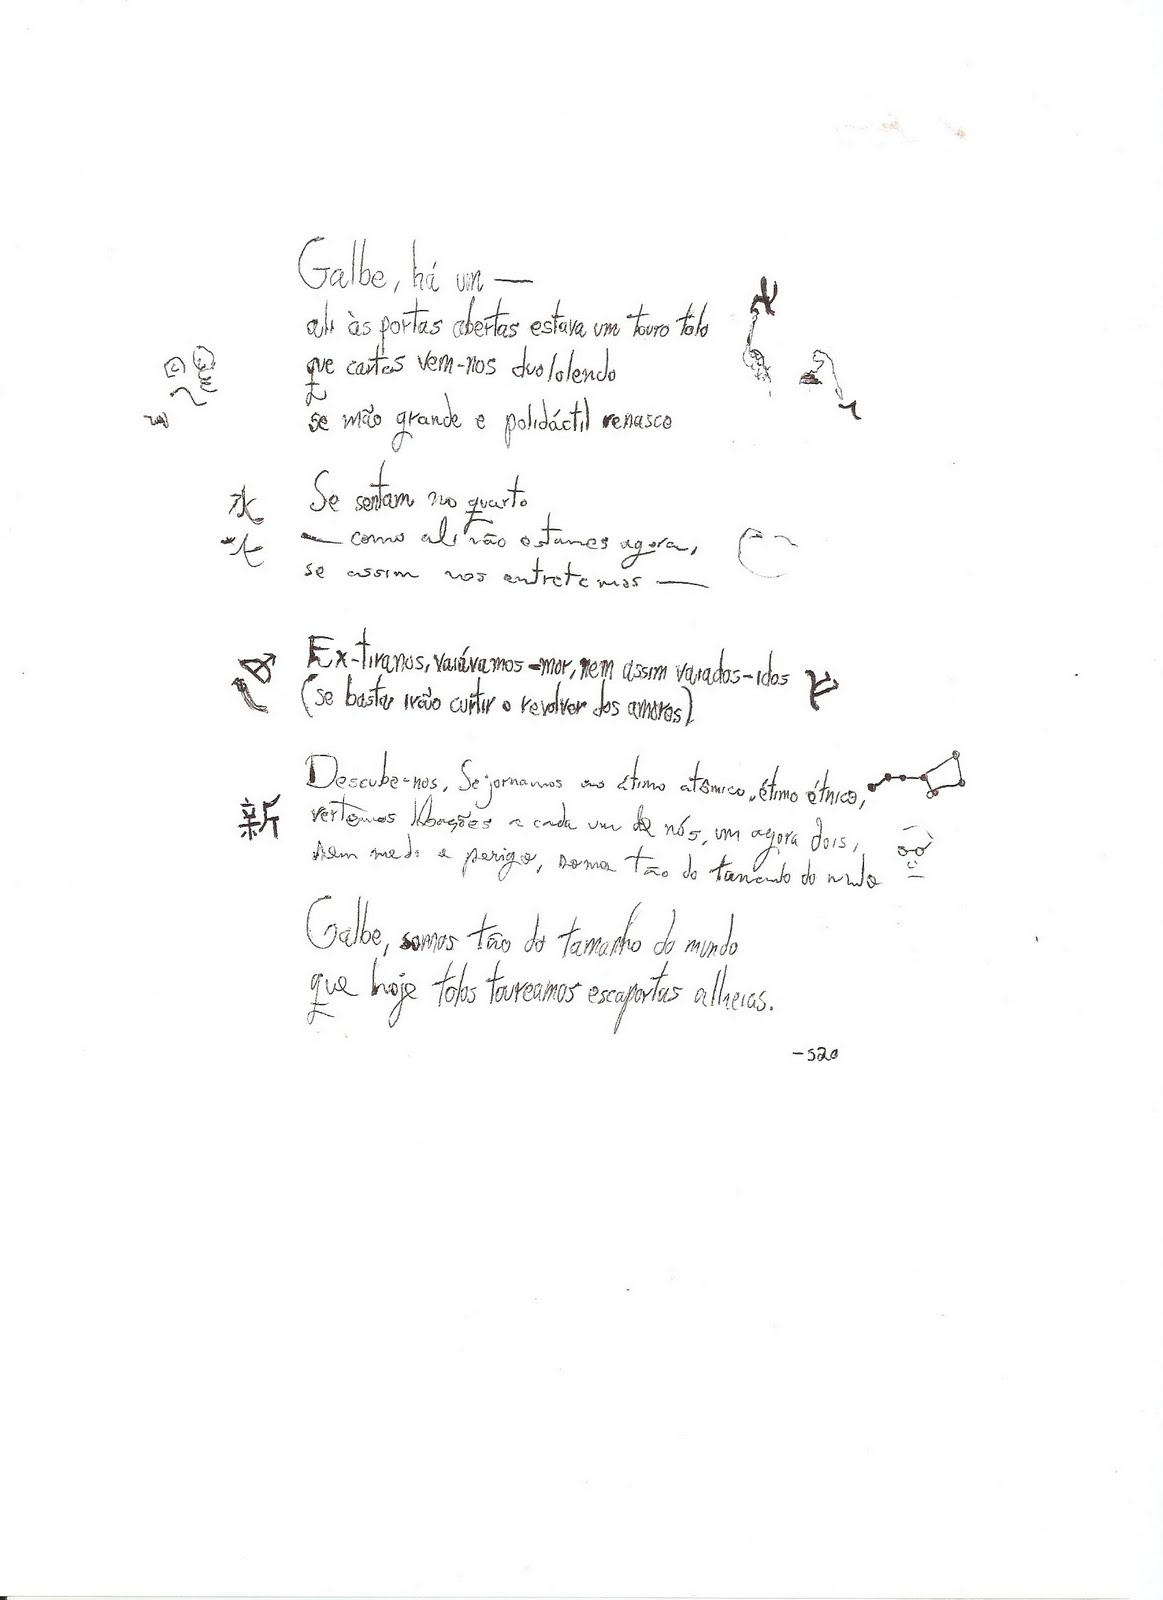 Galbe, há um —
ali às portas abertas estava um touro tolo
que cartas vem-nos duo/olendo
se mão grande e polidáctil renasco
水 Se sentam no quarto
— como ali não estamos agora,
se assim nos entretemos —
Ex-tiranos, vaiávamos-mor, nem assim vaiados-idos
(se bastar irão curtir o revolver dos amores)
Descube-nos, Se jornamos ao átimo atômico, étimo étnico,
新 vertemos libações a cada um de nós, um agora dois,
sem medo e perigo, somos tão do tamanho do mundo
Galbe, somos tão do tamanho do mundo
que hoje tolos toureamos escaportas alheias.